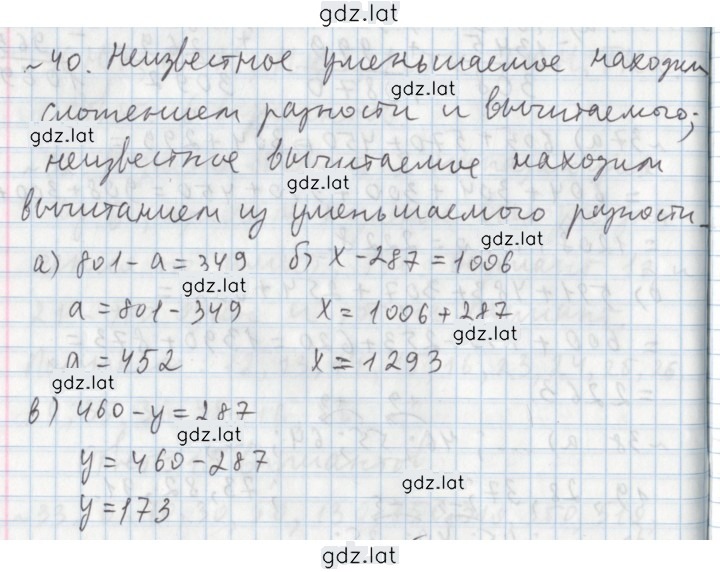 gdz.lat
~ 40. Неизвестное уменьшаемое находим
gdz.lat
сложением разности и вычитаемого;
gdz.lat
неизвестное вычитаемое находим
gdz.lat
вычитанием из уменьшаемого разности.
gdz.lat
а) 801 - а = 349 б) x - 287 = 1006
а = 801 - 349 x = 1006 + 287
gdz.lat
а = 452 x = 1293
gdz.lat
в) 460 - y = 287
gdz.lat
y = 460 - 287
gdz.lat
y = 173
gdz.lat